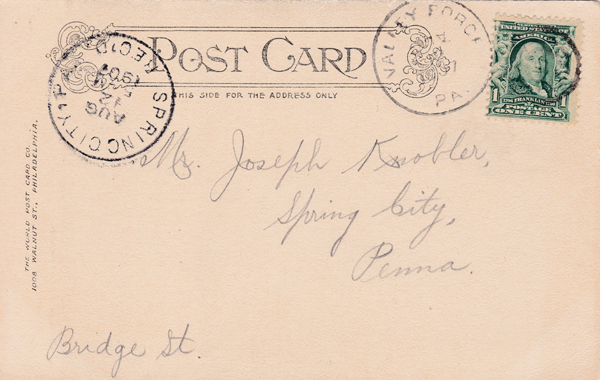 POST CARD
THIS SIDE FOR THE ADDRESS ONLY
SPRING CITY, PA.
REC'D
AUG
12
190
VALLEY FORGE
PA.
FRANKLIN
1 POSTAGE 1
ONE CENT
THE WORLD POST CARD CO.
1008 WALNUT ST., PHILADELPHIA.
Mr. Joseph Knobler,
Spring City,
Penna.
Bridge St.